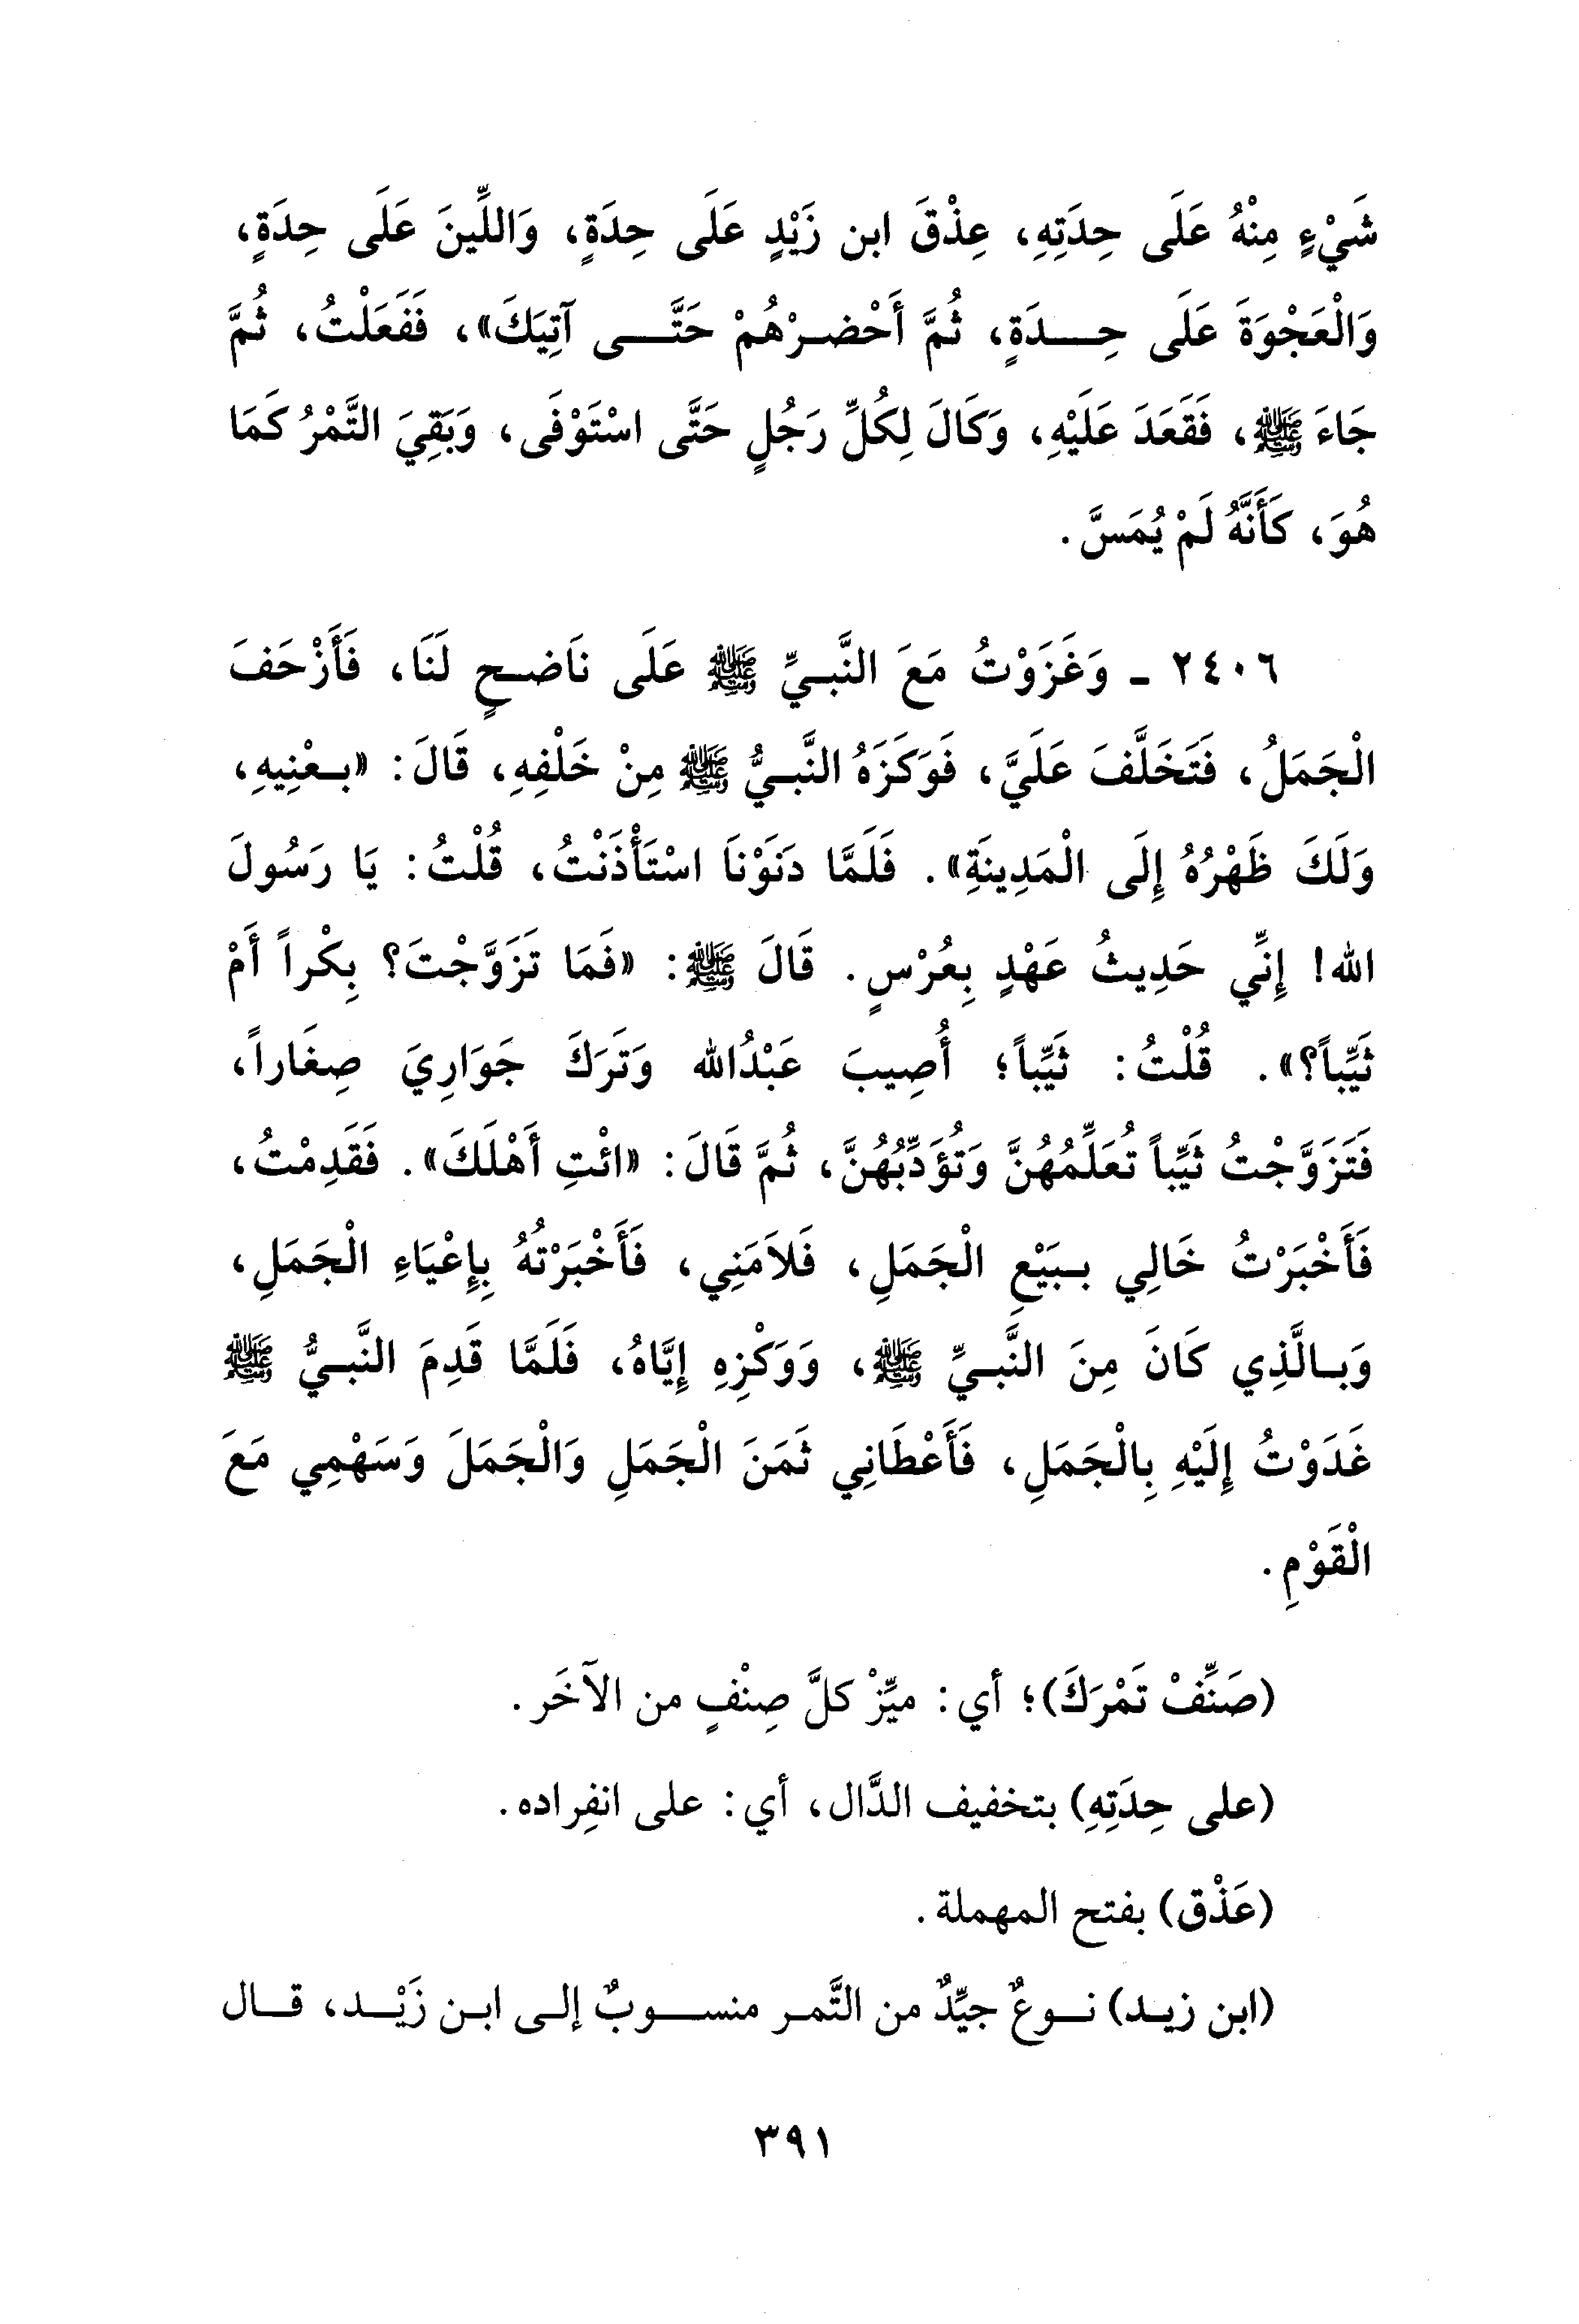 شَيْءٍ مِنْهُ عَلَى حِدَتِهِ، عِذْقَ ابن زَيْدٍ عَلَى حِدَةٍ، وَاللِّينَ عَلَى حِدَةٍ،
وَالْعَجْوَةَ عَلَى حِدَةٍ، ثُمَّ أَحْضرْهُمْ حَتَّى آتِيَكَ»، فَفَعَلْتُ، ثُمَّ
جَاءَ ﷺ، فَقَعَدَ عَلَيْهِ، وَكَالَ لِكُلِّ رَجُلٍ حَتَّى اسْتَوْفَى، وَبَقِيَ التَّمْرُ كَمَا
هُوَ، كَأَنَّهُ لَمْ يُمَسَّ.
٢٤٠٦ - وَغَزَوْتُ مَعَ النَّبيِّ ﷺ عَلَى نَاضحٍ لَنَا، فَأَزْحَفَ
الْجَمَلُ، فَتَخَلَّفَ عَلَيَّ، فَوَكَزَهُ النَّبيُّ ﷺ مِنْ خَلْفِهِ، قَالَ: «بعْنِيهِ،
وَلَكَ ظَهْرُهُ إِلَى الْمَدِينَةِ». فَلَمَّا دَنَوْنَا اسْتَأْذَنْتُ، قُلْتُ: يَا رَسُولَ
الله! إِنِّي حَدِيثُ عَهْدٍ بِعُرْسٍ. قَالَ ﷺ: «فَمَا تَزَوَّجْتَ؟ بِكْراً أَمْ
ثَيِّباً؟». قُلْتُ: ثَيِّباً؛ أُصِيبَ عَبْدُالله وَتَرَكَ جَوَارِيَ صِغَاراً،
فَتَزَوَّجْتُ ثَيِّباً تُعَلِّمُهُنَّ وَتُؤَدِّبُهُنَّ، ثُمَّ قَالَ: «ائْتِ أَهْلَكَ». فَقَدِمْتُ،
فَأَخْبَرْتُ خَالِي ببَيْعِ الْجَمَلِ، فَلاَمَنِي، فَأَخْبَرْتُهُ بِإِعْيَاءِ الْجَمَلِ،
وَبالَّذِي كَانَ مِنَ النَّبيِّ ﷺ، وَوَكْزِهِ إِيَّاهُ، فَلَمَّا قَدِمَ النَّبيُّ ﷺ
غَدَوْتُ إِلَيْهِ بِالْجَمَلِ، فَأَعْطَانِي ثَمَنَ الْجَمَلِ وَالْجَمَلَ وَسَهْمِي مَعَ
الْقَوْمِ.
(صَنِّفْ تَمْرَكَ)؛ أي: ميِّزْ كلَّ صِنْفٍ من الآخَر.
(على حِدَتِهِ) بتخفيف الدَّال، أي: على انفِراده.
(عَذْق) بفتح المهملة.
(ابن زيد) نوعٌ جيِّدٌ من التَّمر منسوبٌ إلى ابن زَيْد، قال
٣٩١